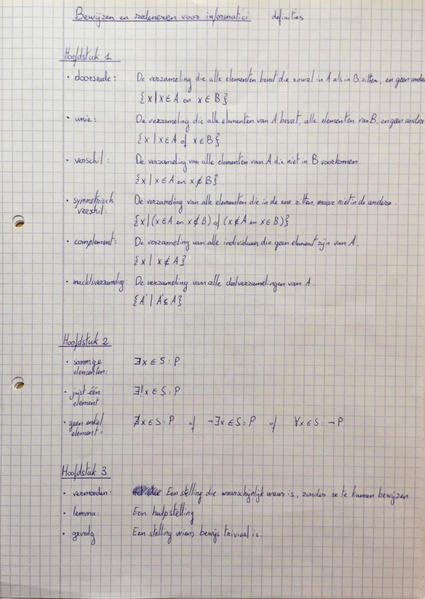 Bewijzen en redeneren voor informatici definities
Hoofdstuk 1
• doorsnede: De verzameling die alle elementen bevat die zowel in A als in B zitten, en geen andere
{x | x ∈ A en x ∈ B}
• unie: De verzameling die alle elementen van A bevat, alle elementen van B, en geen andere
{x | x ∈ A of x ∈ B}
• verschil: De verzameling van alle elementen van A die niet in B voorkomen
{x | x ∈ A en x ∉ B}
• symmetrisch De verzameling van alle elementen die in de ene zitten, maar niet in de andere.
verschil: {x | (x ∈ A en x ∉ B) of (x ∉ A en x ∈ B)}
• complement: De verzameling van alle individuen die geen element zijn van A.
{x | x ∉ A}
• machtsverzameling De verzameling van alle deelverzamelingen van A
{A' | A' ⊆ A}
Hoofdstuk 2
• sommige ∃x ∈ S : P
elementen:
• juist één ∃!x ∈ S : P
element:
• geen enkel ∄x ∈ S : P of ¬∃x ∈ S : P of ∀x ∈ S : ¬P
element:
Hoofdstuk 3
• vermoeden: Een stelling die waarschijnlijk waar is, zonder ze te kunnen bewijzen
• lemma: Een hulpstelling
• gevolg Een stelling wiens bewijs triviaal is.